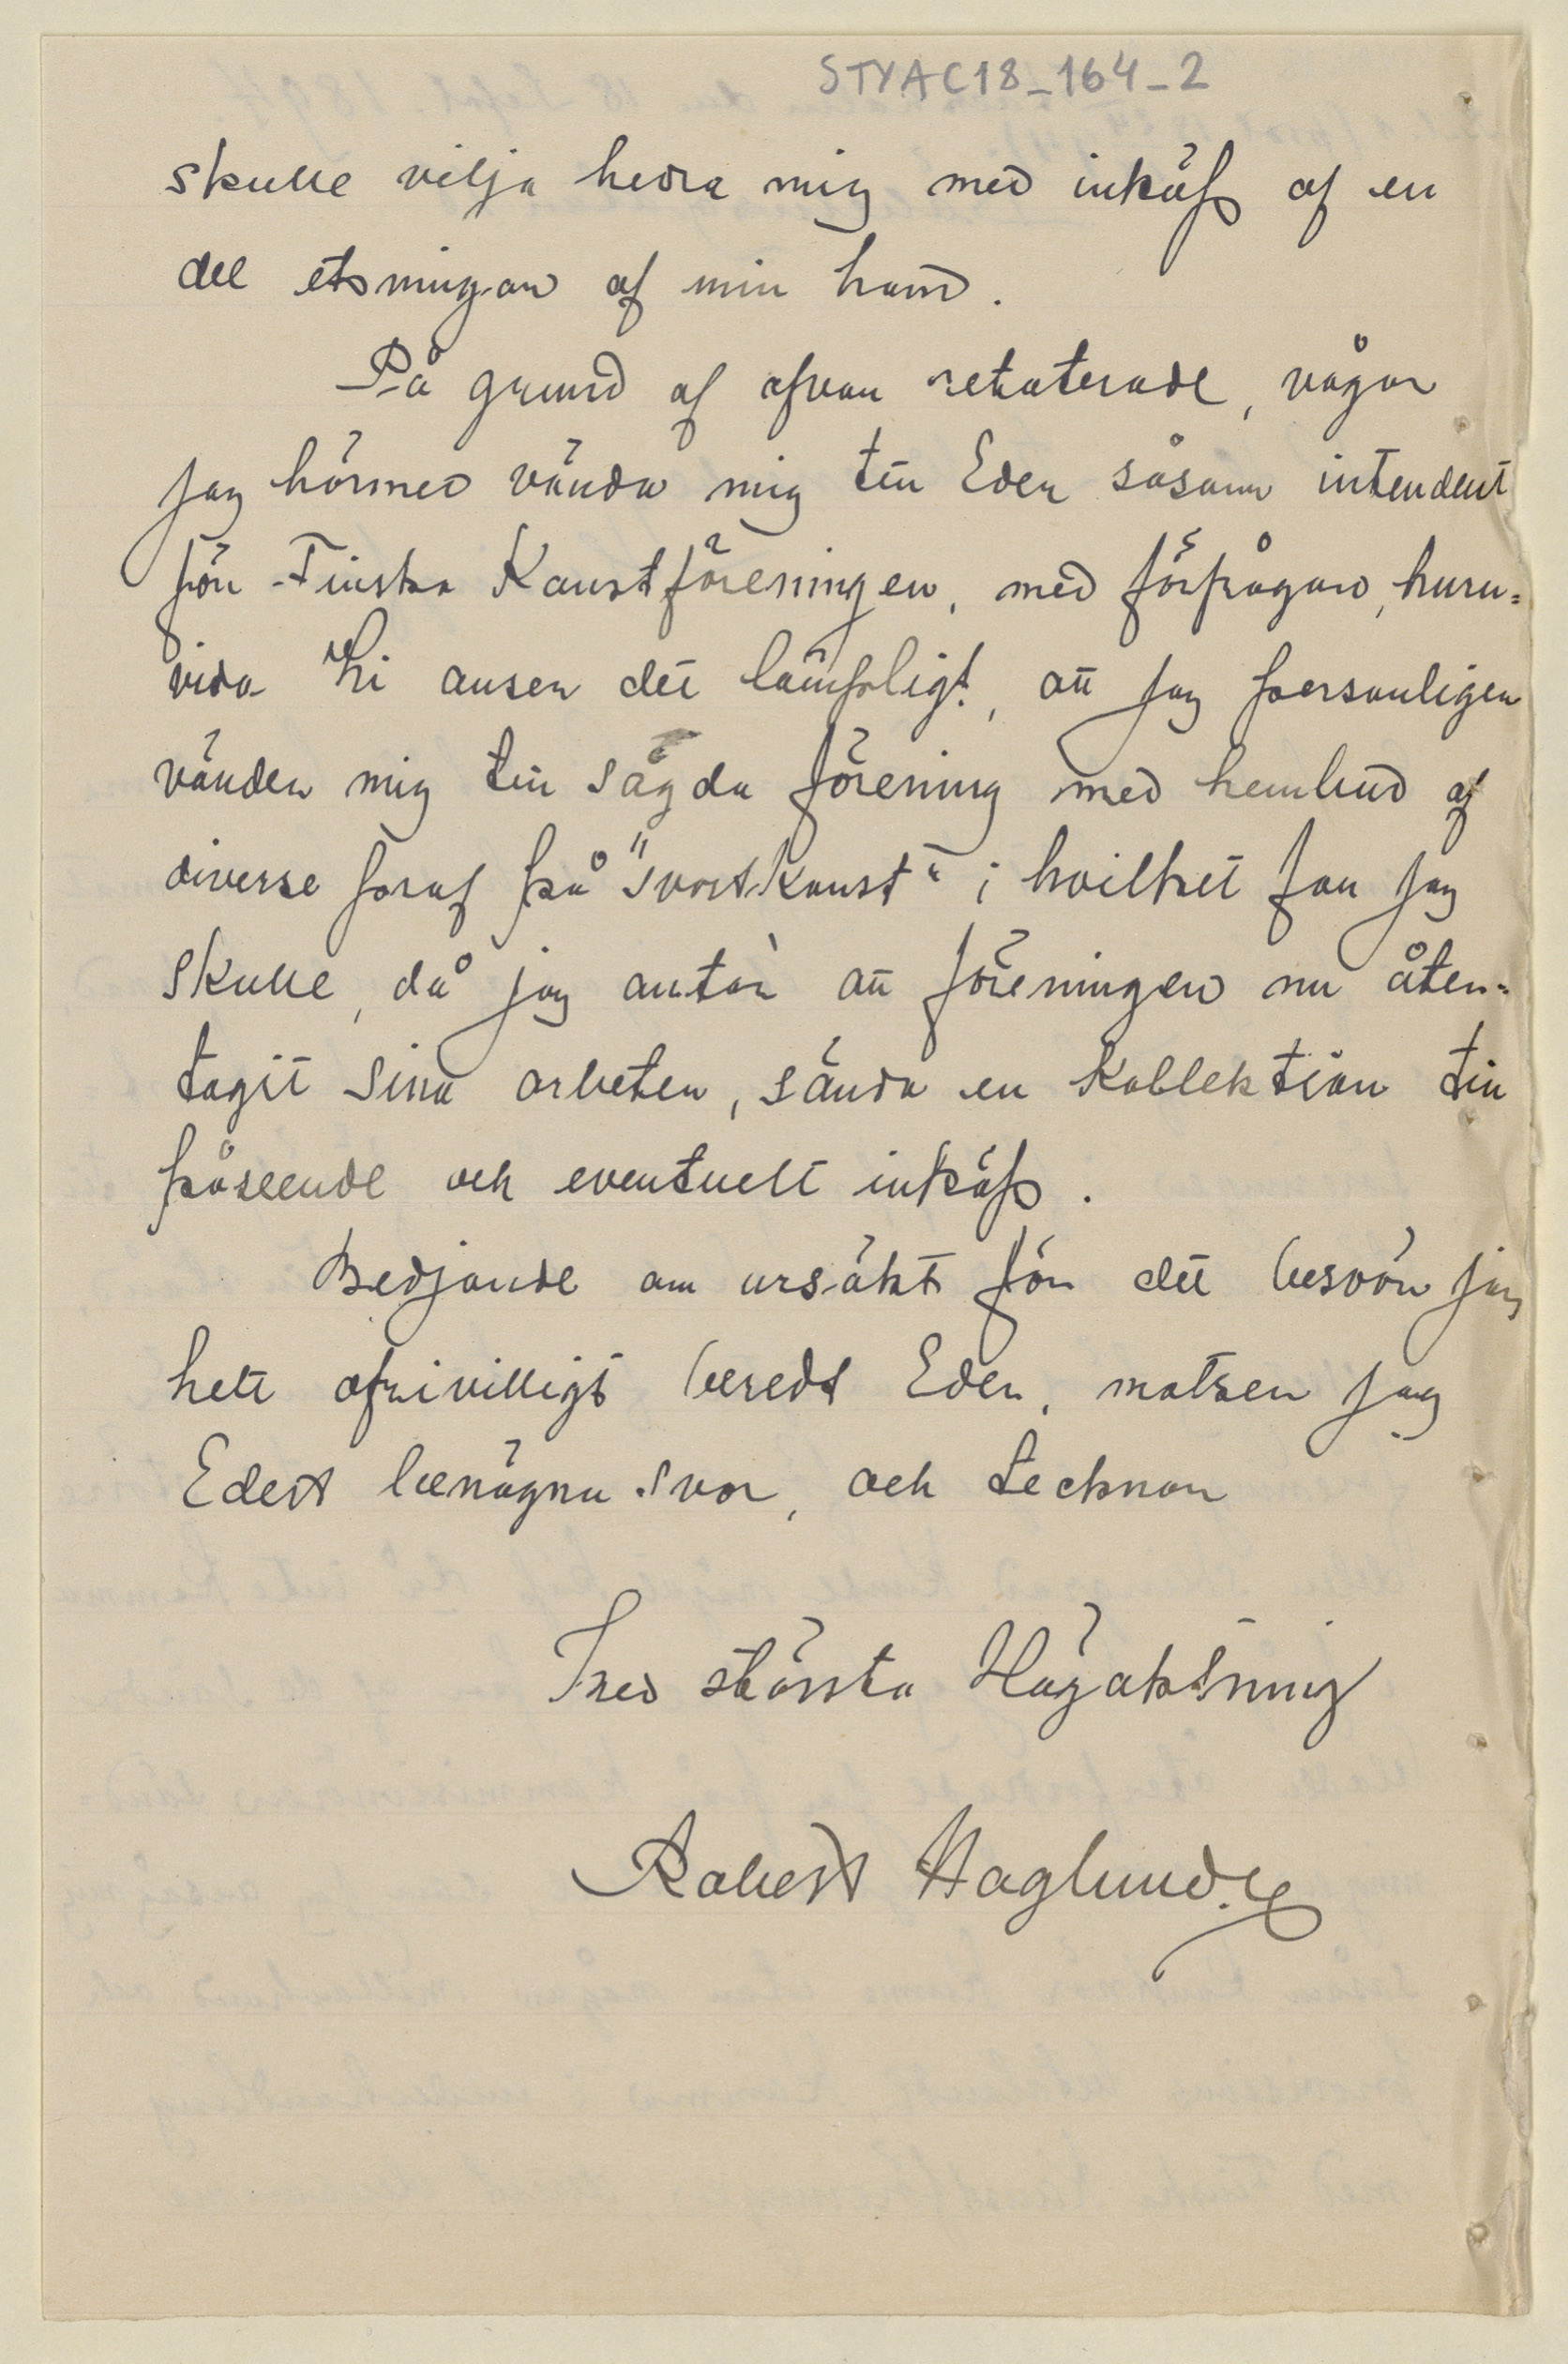 STYAC18_164_2
skulle vilja hedra mig med inköp af en
del etsningar af min hand.
På grund af ofvan relaterade, vågar
jag härmed vända mig till Eder såsom intendent
för Finska Konstföreningen, med förfrågan, huru=
vida Ni anser det lämpligt, att jag personligen
vänder mig till sagda förening med hembud af
diverse prof på "svartkonst"; i hvilket fall jag
skulle, då jag antar att föreningen nu åter=
tagit sina arbeten, sända en kollektion till
påseende och eventuelt inköp.
Bedjande om ursäkt för det besvär jag
helt ofrivilligt beredt Eder, motser jag
Edert benägna svar, och tecknar
Med största Högaktning
Robert Haglund